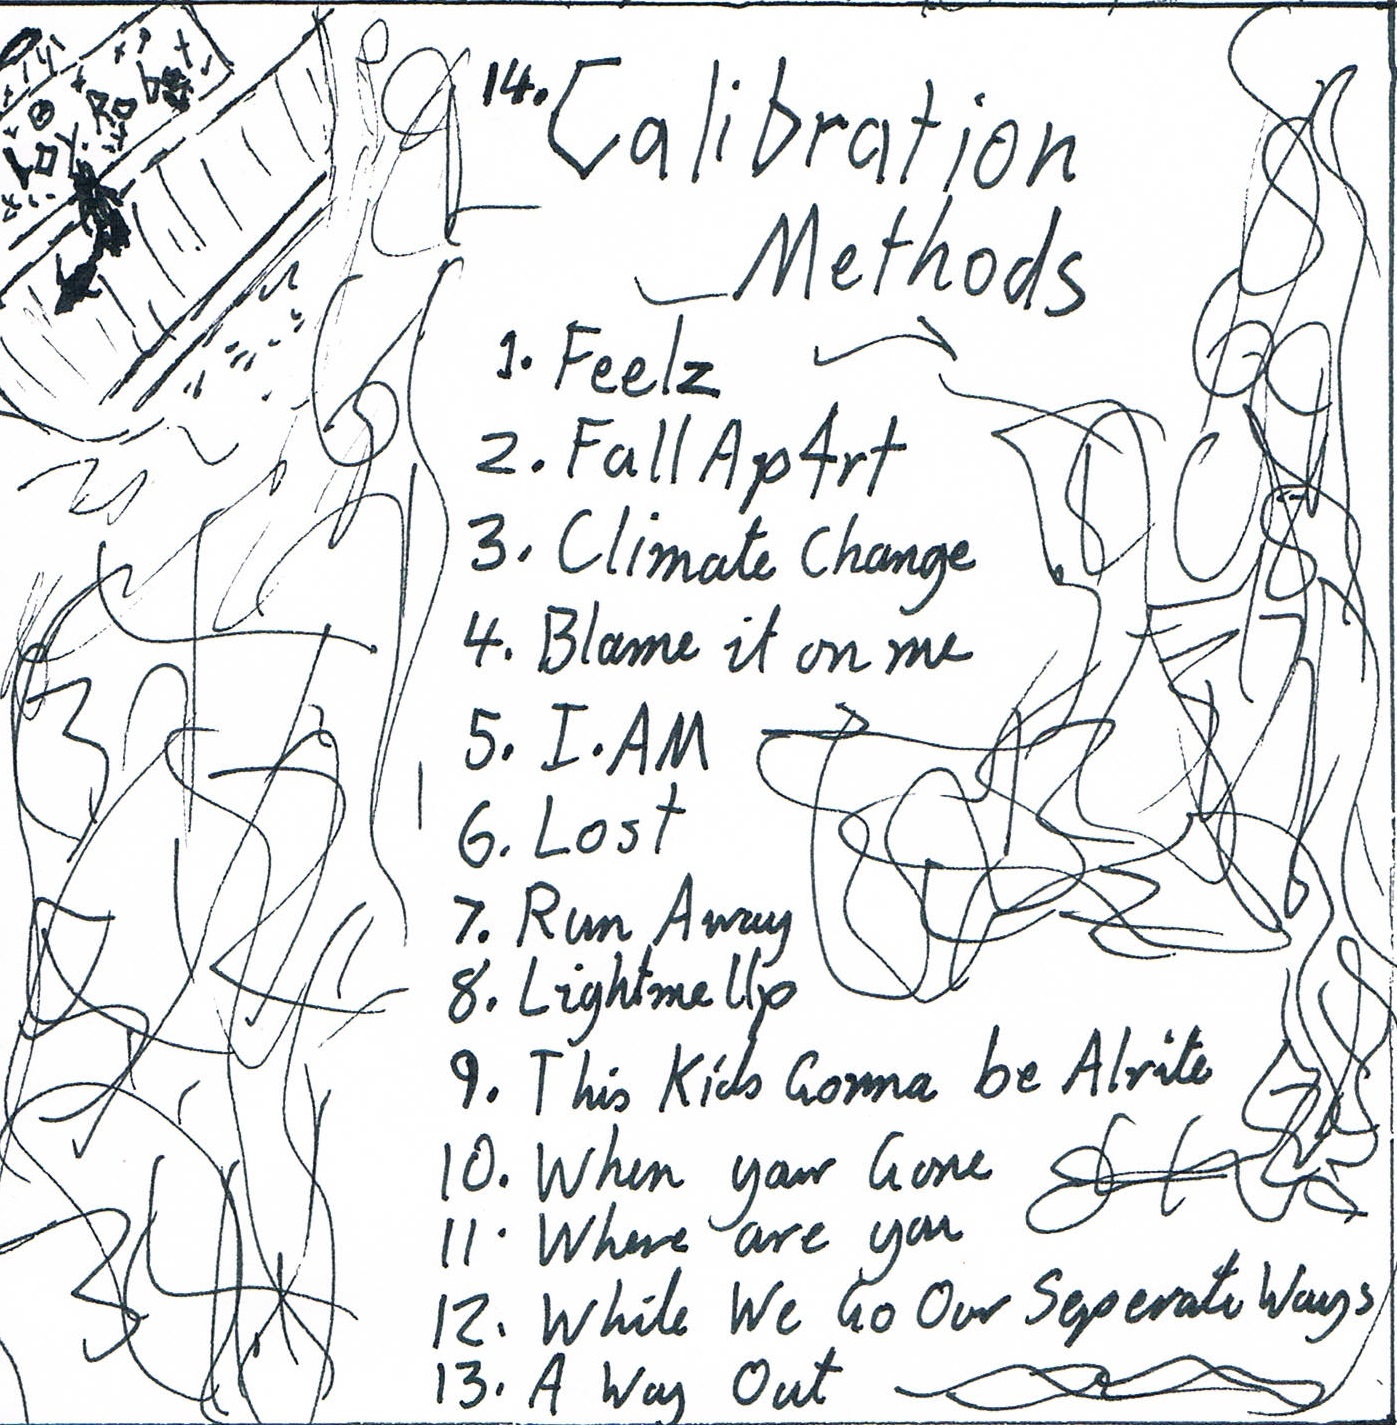 14. Calibration
Methods
1. Feelz
2. Fall Ap4rt
3. Climate Change
4. Blame it on me
5. I.AM
6. Lost
7. Run Away
8. Light me Up
9. This Kids Gonna be Alrite
10. When your Gone
11. Where are you
12. While We Go Our Seperate Ways
13. A Way Out